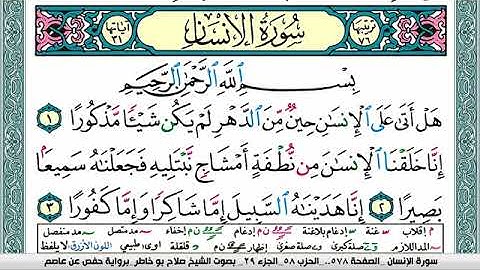 ترتيبها ٧٦ سورة الإنسان آياتها ٣١
بِسْمِ اللَّهِ الرَّحْمَٰنِ الرَّحِيمِ
هَلْ أَتَىٰ عَلَى الْإِنسَانِ حِينٌ مِّنَ الدَّهْرِ لَمْ يَكُن شَيْئًا مَّذْكُورًا ١
إِنَّا خَلَقْنَا الْإِنسَانَ مِن نُّطْفَةٍ أَمْشَاجٍ نَّبْتَلِيهِ فَجَعَلْنَاهُ سَمِيعًا
بَصِيرًا ٢ إِنَّا هَدَيْنَاهُ السَّبِيلَ إِمَّا شَاكِرًا وَإِمَّا كَفُورًا ٣
م إقلاب غنة إدغام بلاغنة إدغام ن م إخفاء مد متصل مد منفصل
المد اللازم صلة كبرى صلة صغرى إظهار ن م قلقلة طبيعي اللون الأزرق لا يلفظ
سورة الإنسان _ الصفحة ٥٧٨_ الحزب ٥٨_ الجزء ٢٩_ بصوت الشيخ صلاح بو خاطر_ برواية حفص عن عاصم